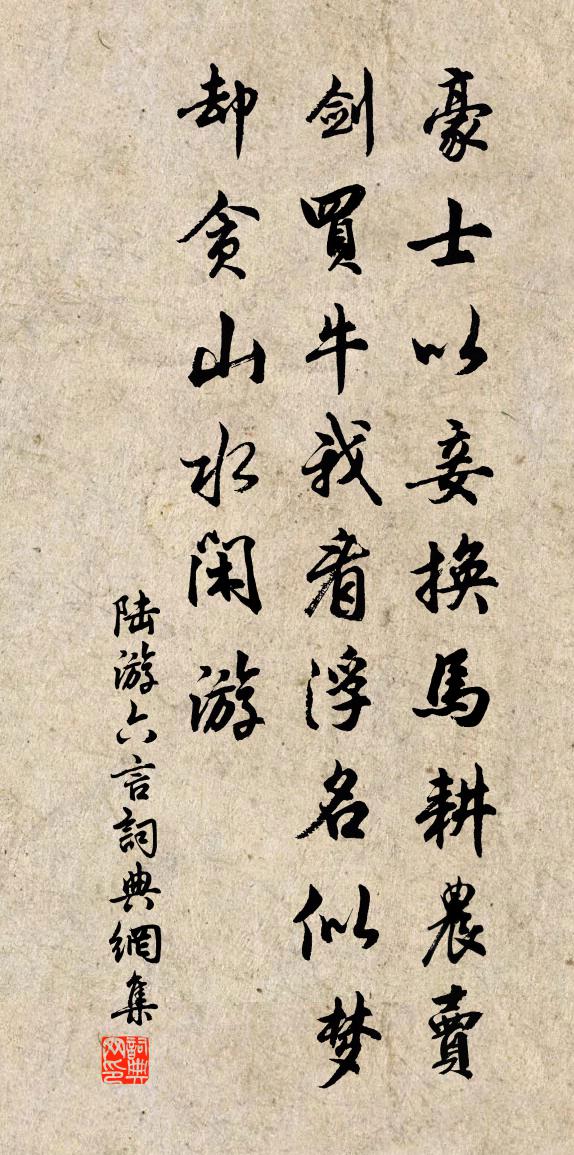 豪士以妾換馬耕農賣
劍買牛我看浮名似梦
却貪山水闲游
陆游六言詞典網集
詞典网印